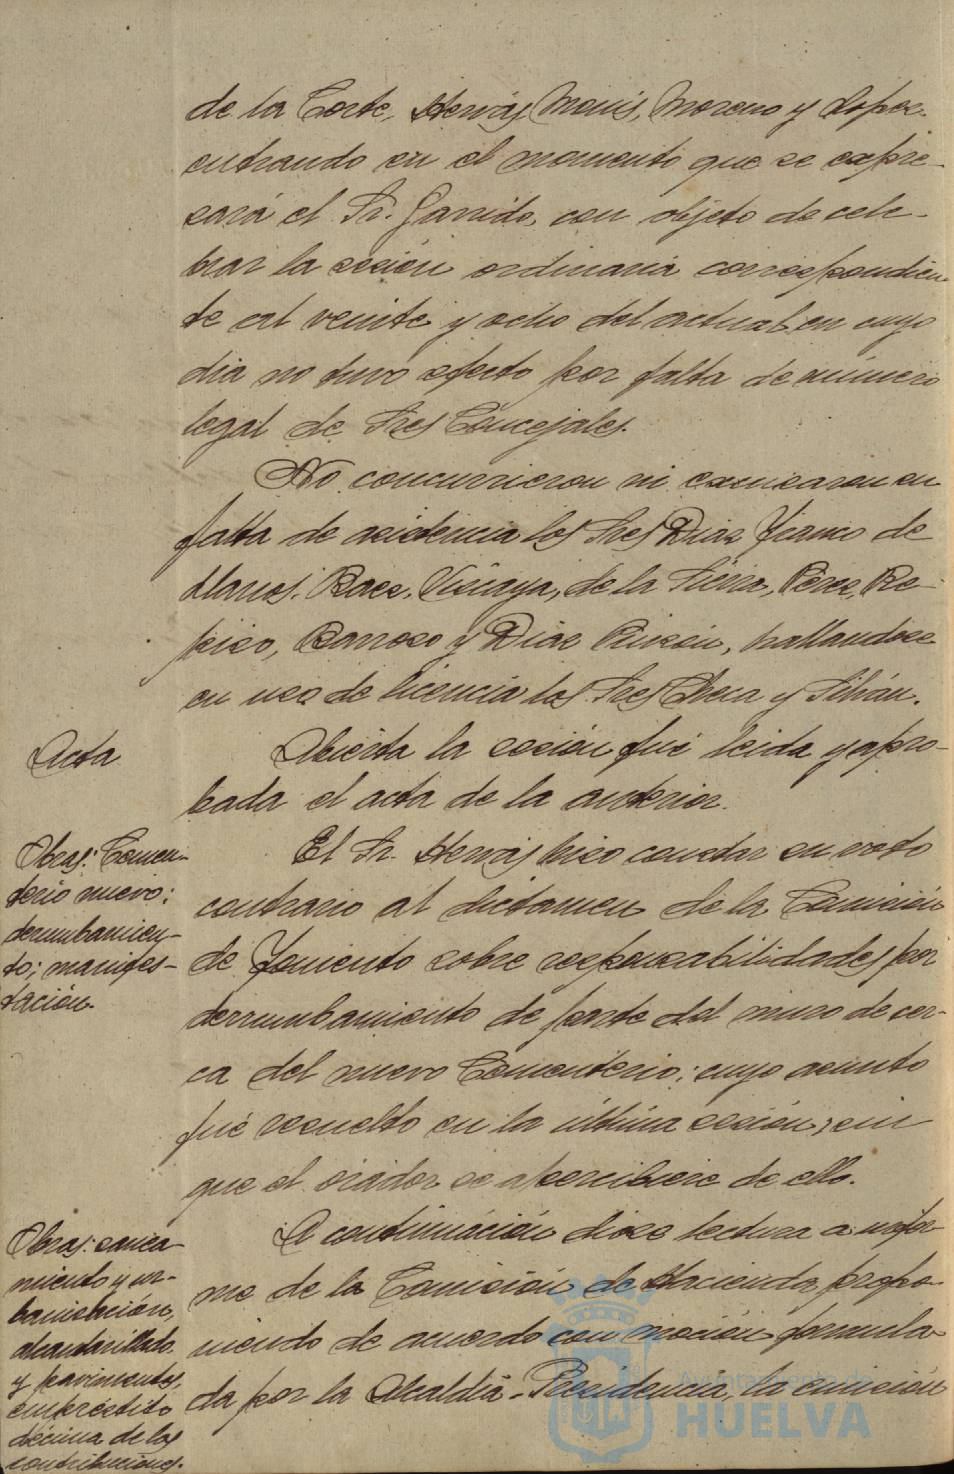 de la Corte, Hervás, Monis, Moreno y López
entrando en el momento que se expre-
sará el Sr. Garrido, con objeto de cele-
brar la sesión ordinaria correspondien-
te al veinte y ocho del actual en cuyo
dia no tuvo efecto por falta de número
legal de Sres Concejales.
No concurrieron ni excusaron su
falta de asistencia los Sres Diaz Franco de
Llanos, Baez, Vizcaya, de la Sierra, Pérez, Re-
piso, Barroso y Diaz Pinzón, hallandose
en uso de licencia los Sres Checa y
Acta
Abierta la sesión fué leida y apro-
bada el acta de la anterior.
Obras: Cemen-
terio nuevo:
derrumbamien-
to; manifes-
tación.
El Sr. Hervás hizo constar su voto
contrario al dictamen de la Comisión
de Fomento sobre responsabilidades por
derrumbamiento de parte del muro de cer-
ca del nuevo Cementerio; cuyo asunto
fué resuelto en la última sesión, sin
que el orador se apercibiere de ello.
Obras: sanea-
miento y ur-
banización,
alcantarillado
y pavimento,
empréstito
décima de las
contribuciones.
A continuación dióse lectura a infor-
me de la Comisión de Hacienda, propo-
niendo de acuerdo con moción formula-
da por la Alcaldía-Presidencia, la emisión
Ayuntamiento de
HUELVA